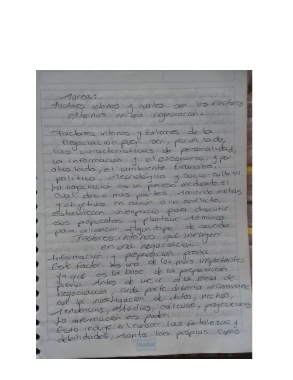 Tarea:
Factores internos y cuales son los factores
externos en una negociación.
Factores internos y externos de la
negociación pueden ser, por un lado,
las características de personalidad,
la información y el escenario, y por
otro lado, el ambiente financiero,
político, tecnológico y socio cultural
La negociación es un proceso mediante el
cual dos o más partes, teniendo metas
y objetivos en común o en conflicto,
establecen un espacio para discutir
sus propuestas y plantear términos
para alcanzar algún tipo de acuerdo.
Factores internos que influyen
en una negociación
Información y preparación previa
Este factor es uno de los más importantes
ya que es la base de la preparación
previa. Antes de ir a la mesa de
negociación cada parte debería
en la investigación de datos, hechos,
tendencias, estudios, cálculos, proyecciones
La información es poder.
Esto incluye las fortalezas y
debilidades, tanto las propias como